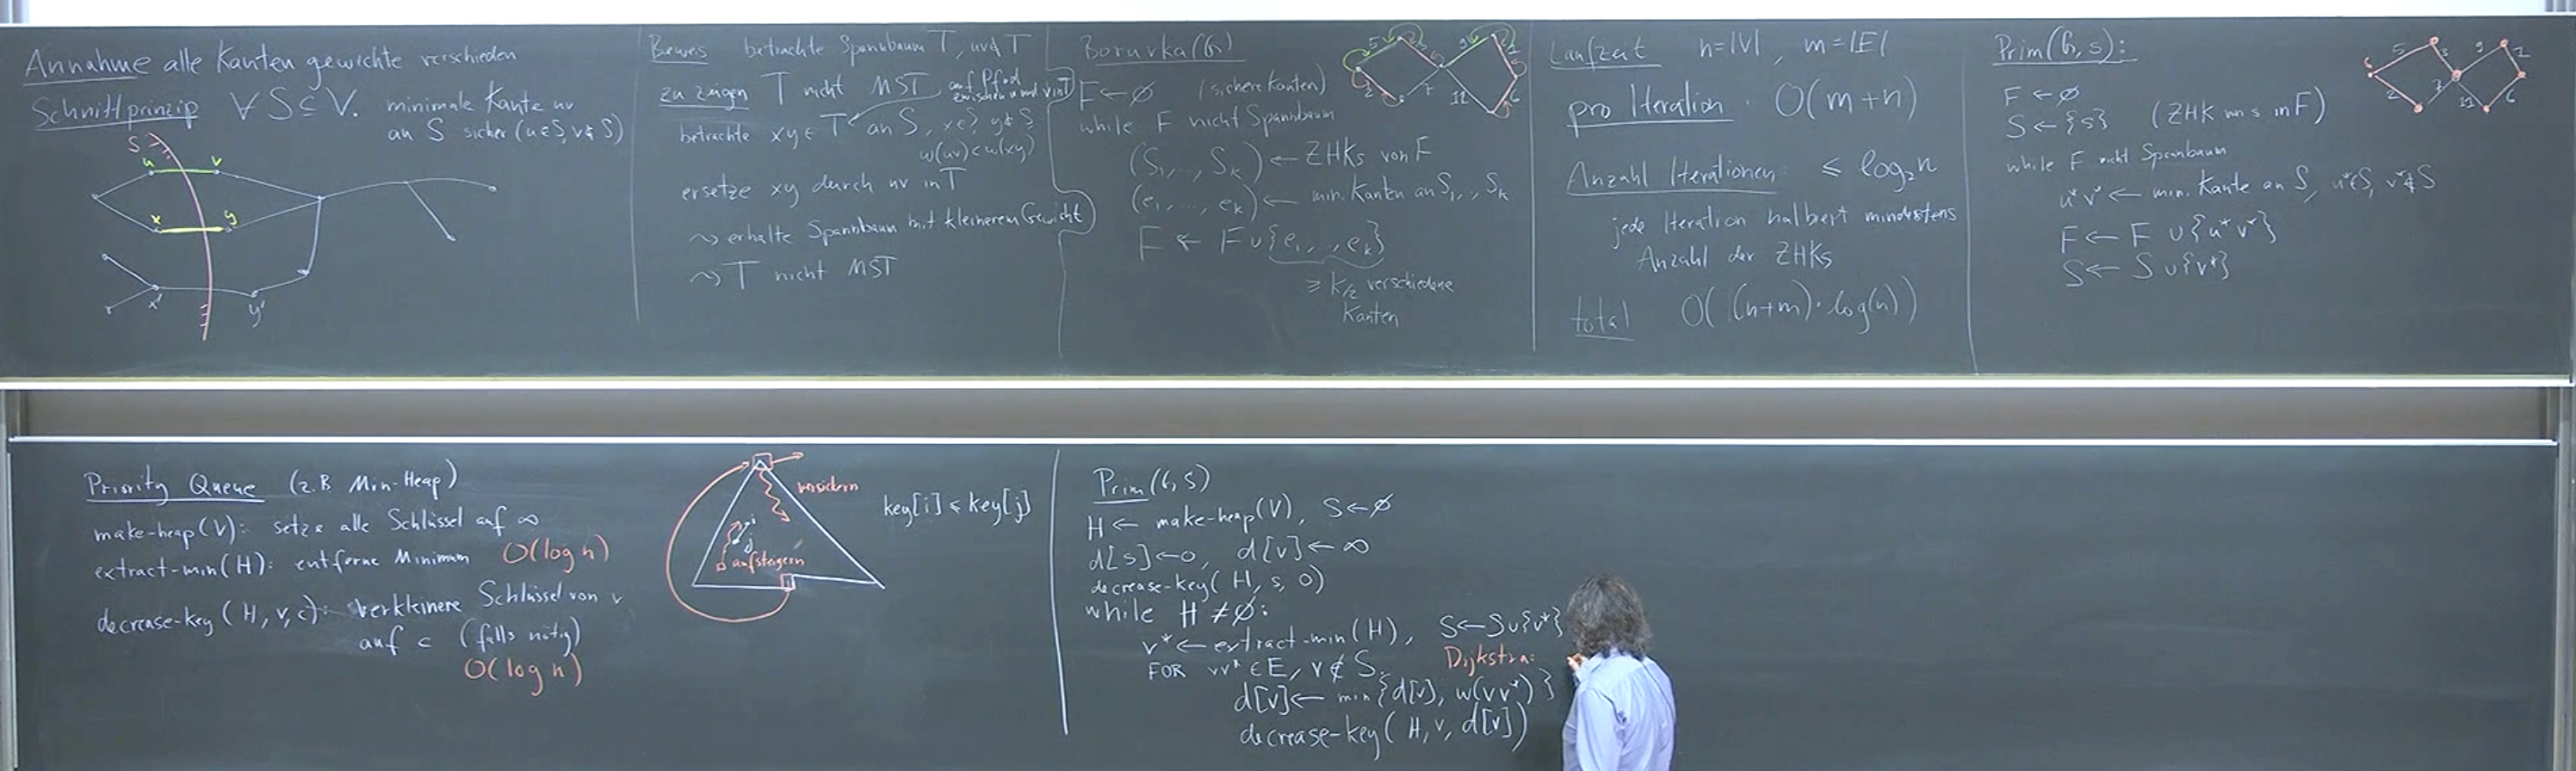 Annahme alle Kanten gewichte verschieden
Schnittprinzip ∀S⊆V. minimale Kante uv
an S sicher (u∈S, v∉S)
S
u v
x y
x' y'
Beweis betrachte Spannbaum T, uv∉T
zu zeigen T nicht MST
auf Pfad
zwischen u und v in T
betrachte xy∈T an S, x∈S y∉S
w(uv)<w(xy)
ersetze xy durch uv in T
⤳ erhalte Spannbaum mit kleinerem Gewicht
⤳ T nicht MST
Boruvka(G)
F←∅ (sichere Kanten)
while F nicht Spannbaum
(S₁,..,Sₖ) ← ZHKs von F
(e₁,..,eₖ) ← min. Kanten an S₁,..,Sₖ
F ← F∪{e₁,..,eₖ}
≥ k/2 verschiedene
Kanten
5 3 9 1
2 7 11 6
Laufzeit n=|V|, m=|E|
pro Iteration: O(m+n)
Anzahl Iterationen: ≤ log₂n
jede Iteration halbiert mindestens
Anzahl der ZHKs
total O((n+m)·log(n))
Prim(G,s):
F←∅
S←{s} (ZHK von s in F)
while F nicht Spannbaum
u*v* ← min. Kante an S, u*∈S, v*∉S
F← F ∪{u*v*}
S← S∪{v*}
5 3 9
2 7 11 6
Priority Queue (z.B Min-Heap)
make-heap(V): setze alle Schlüssel auf ∞
extract-min(H): entferne Minimum O(log n)
decrease-key(H,v,c): verkleinere Schlüssel von v
auf c (falls nötig)
O(log n)
versickern
i
j
aufsteigern
key[i]≤key[j]
Prim(G,s)
H← make-heap(V), S←∅
d[s]←0, d[v]←∞
decrease-key(H,s,0)
while H≠∅:
v*←extract-min(H), S←S∪{v*}
FOR vv*∈E, v∉S. Dijkstra:
d[v]← min{d[v], w(vv*)}
decrease-key(H,v,d[v])